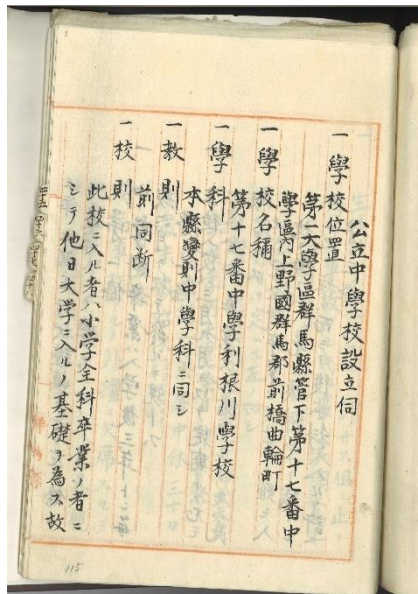 公立中學校設立伺
一 學校位置
第一大學區群馬縣管下第十七番中
學區内上野國群馬郡前橋曲輪町
一 學校名稱
第十七番中學利根川學校
一 學科
本縣變則中學科ニ同シ
一 教則
前同断
一 校則
此校ニ入ル者ハ小学全科卒業ノ者ニ
シテ他日大学ニ入ルノ基礎ヲ為ス故
115